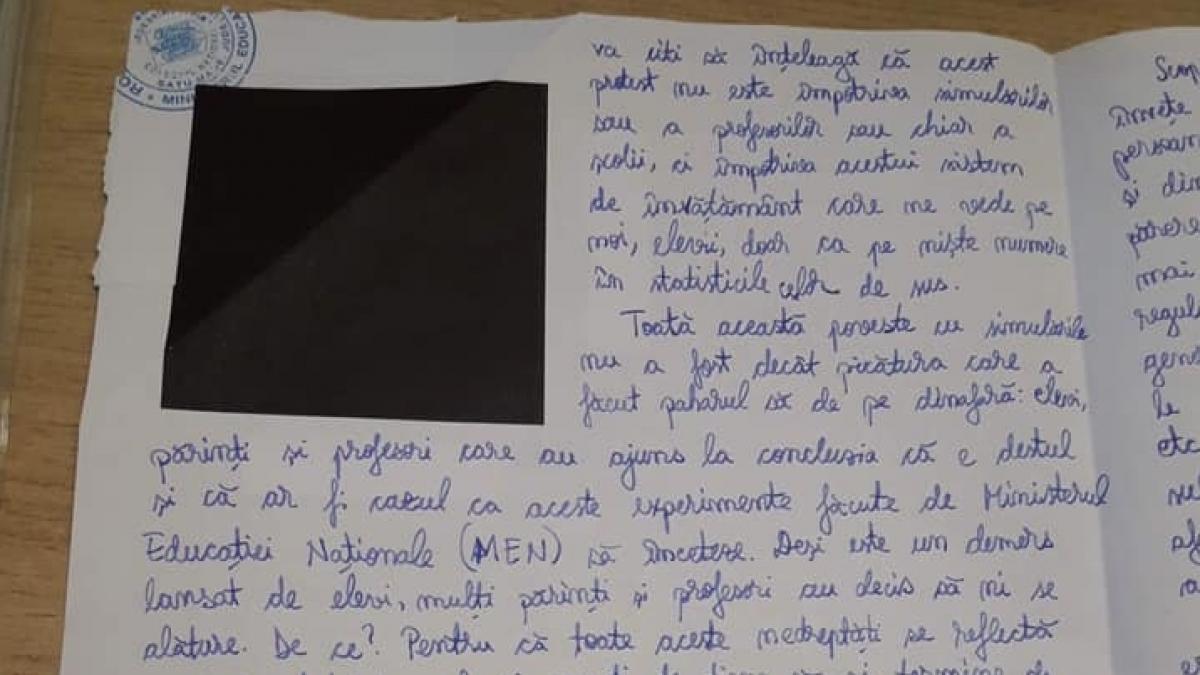 COLEGIUL NAȚIONAL
SATU MARE
RO
MINI
UL EDUCA
va citi să înțeleagă că acest
protest nu este împotriva simulărilor
sau a profesorilor sau chiar a
școlii, ci împotriva acestui sistem
de învățământ care ne vede pe
noi, elevii, doar ca pe niște numere
în statisticile celor de sus.
Toată această poveste cu simulările
nu a fost decât picătura care a
făcut paharul să de pe dinafară: elevi,
părinți și profesori care au ajuns la concluzia că e destul
și că ar fi cazul ca aceste experimente făcute de Ministerul
Educației Naționale (MEN) să înceteze. Deși este un demers
lansat de elevi, mulți părinți și profesori au decis să ni se
alăture. De ce? Pentru că toate aceste nedreptăți se reflectă
și din
părere
mai
regul
le
etc